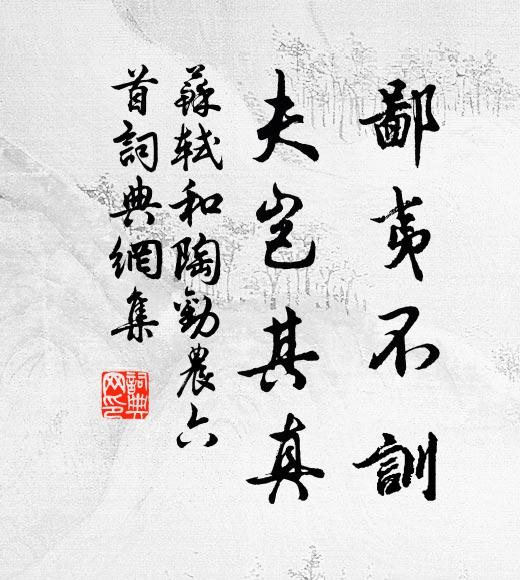 鄙夷不訓
夫豈其真
蘇軾和陶勸農六
首詞典網集
詞典
网印